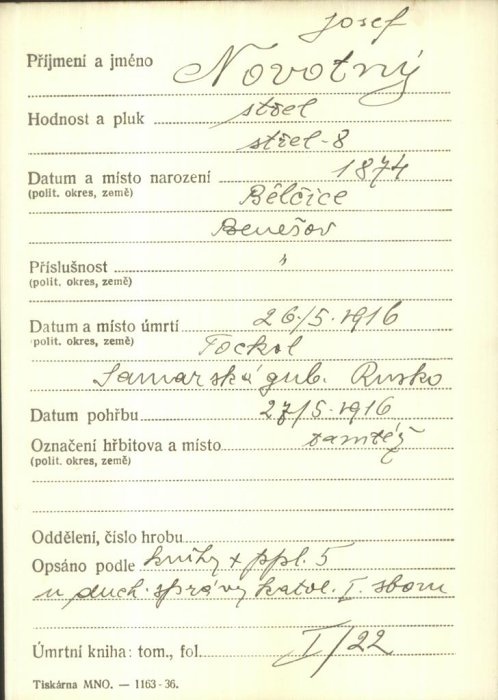 Josef
Příjmení a jméno Novotný
Hodnost a pluk střel
střel-8
Datum a místo narození 1874
(polit. okres, země) Bělčice
Benešov
Příslušnost "
(polit. okres, země)
Datum a místo úmrtí 26/5.1916
(polit. okres, země) Tockol
Samarská gub. Rusko
Datum pohřbu 27/5.1916
Označení hřbitova a místo tamtéž
(polit. okres, země)
Oddělení, číslo hrobu
Opsáno podle knihy + ppl. 5
u duch. správy katol. I. sboru
Úmrtní kniha: tom., fol. I/22
Tiskárna MNO. — 1163-36.